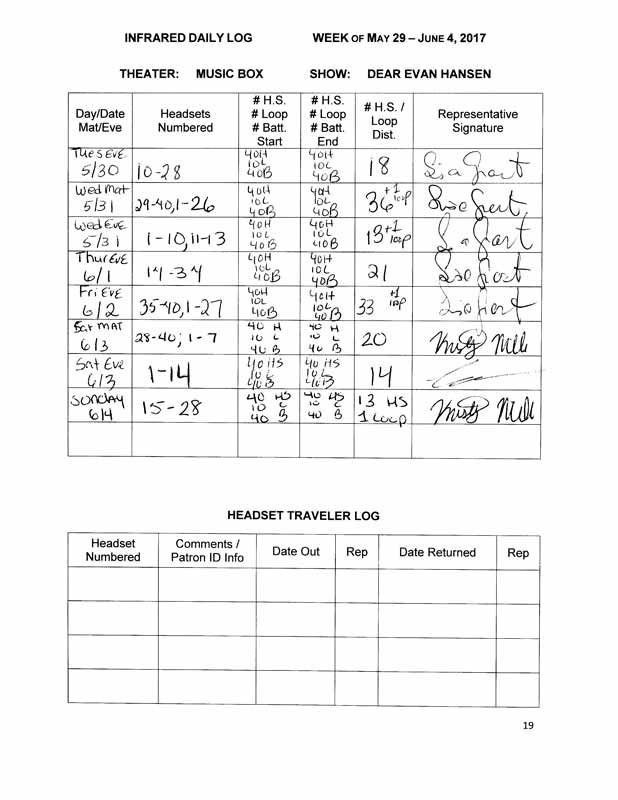 INFRARED DAILY LOG WEEK OF MAY 29 – JUNE 4, 2017
THEATER: MUSIC BOX SHOW: DEAR EVAN HANSEN
Day/Date Mat/Eve Headsets Numbered # H.S. # Loop # Batt. Start # H.S. # Loop # Batt. End # H.S. / Loop Dist. Representative Signature
Tues Eve 5/30 10-28 40H 10L 40B 40H 10L 40B 18
Wed Mat 5/31 29-40, 1-26 40H 10L 40B 40H 10L 40B 36 +1 loop
Wed Eve 5/31 1-10, 11-13 40H 10L 40B 40H 10L 40B 13 +1 loop
Thur Eve 6/1 14-34 40H 10L 40B 40H 10L 40B 21
Fri Eve 6/2 35-40, 1-27 40H 10L 40B 40H 10L 40B 33 +1 lop
Sat MAT 6/3 28-40; 1-7 40 H 10 L 40 B 40 H 10 L 40 B 20
Sat Eve 6/3 1-14 40 HS 10 L 40B 40 HS 10 L 40B 14
SUNDAY 6/4 15-28 40 HS 10 L 40 B 40 HS 10 L 40 B 13 HS 1 Loop
HEADSET TRAVELER LOG
Headset Numbered Comments / Patron ID Info Date Out Rep Date Returned Rep
19